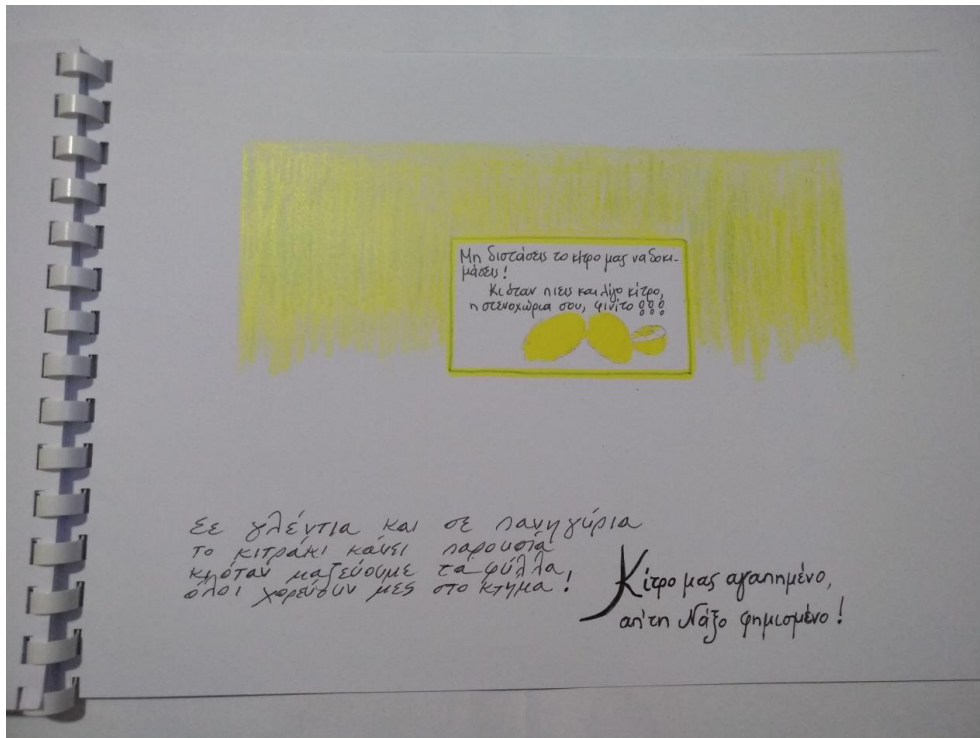 Μη διστάσεις το κίτρο μας να δοκι-
μάσεις!
Κι όταν πιεις και λίγο κίτρο,
η στενοχώρια σου, φινίτο !!!
Σε γλέντια και σε πανηγύρια
το κιτράκι κάνει παρουσία
κι όταν μαζεύουμε τα φύλλα
όλοι χορεύουν μες στο κτήμα!
Κίτρο μας αγαπημένο,
απ' τη Νάξο φημισμένο!